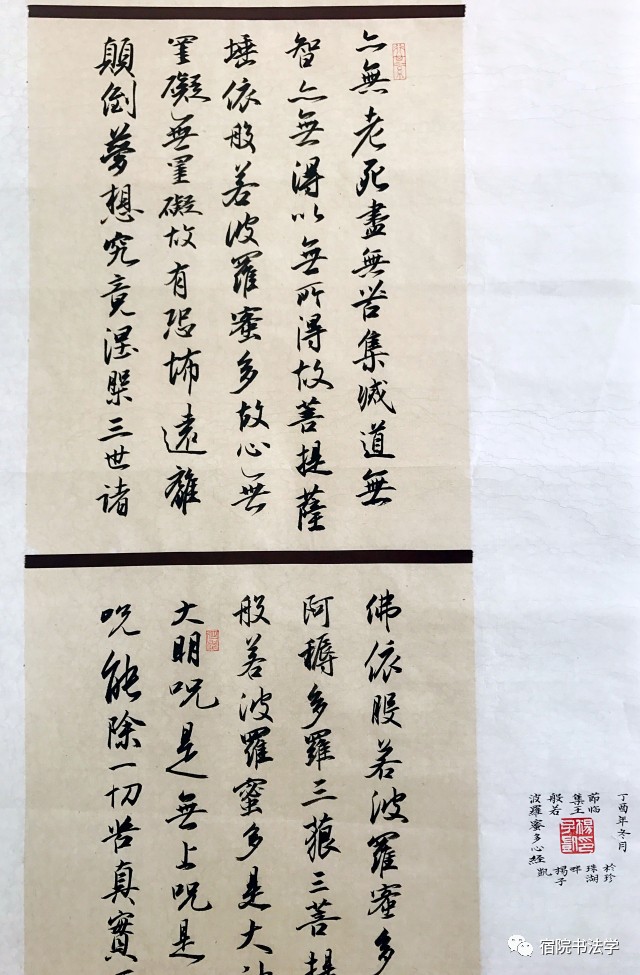 亦無老死盡無苦集滅道無
智亦無得以無所得故菩提薩
埵依般若波羅蜜多故心無
罣礙無罣礙故有恐怖遠離
顛倒夢想究竟涅槃三世諸
佛依般若波羅蜜多
阿耨多羅三藐三菩提
般若波羅蜜多是大
大明呪是無上呪是
呪能除一切苦真實
丁酉年冬月
節临
集王
般若
波羅蜜多心經
於珍
珠湖
畔
楊子
凱
宿院书法学